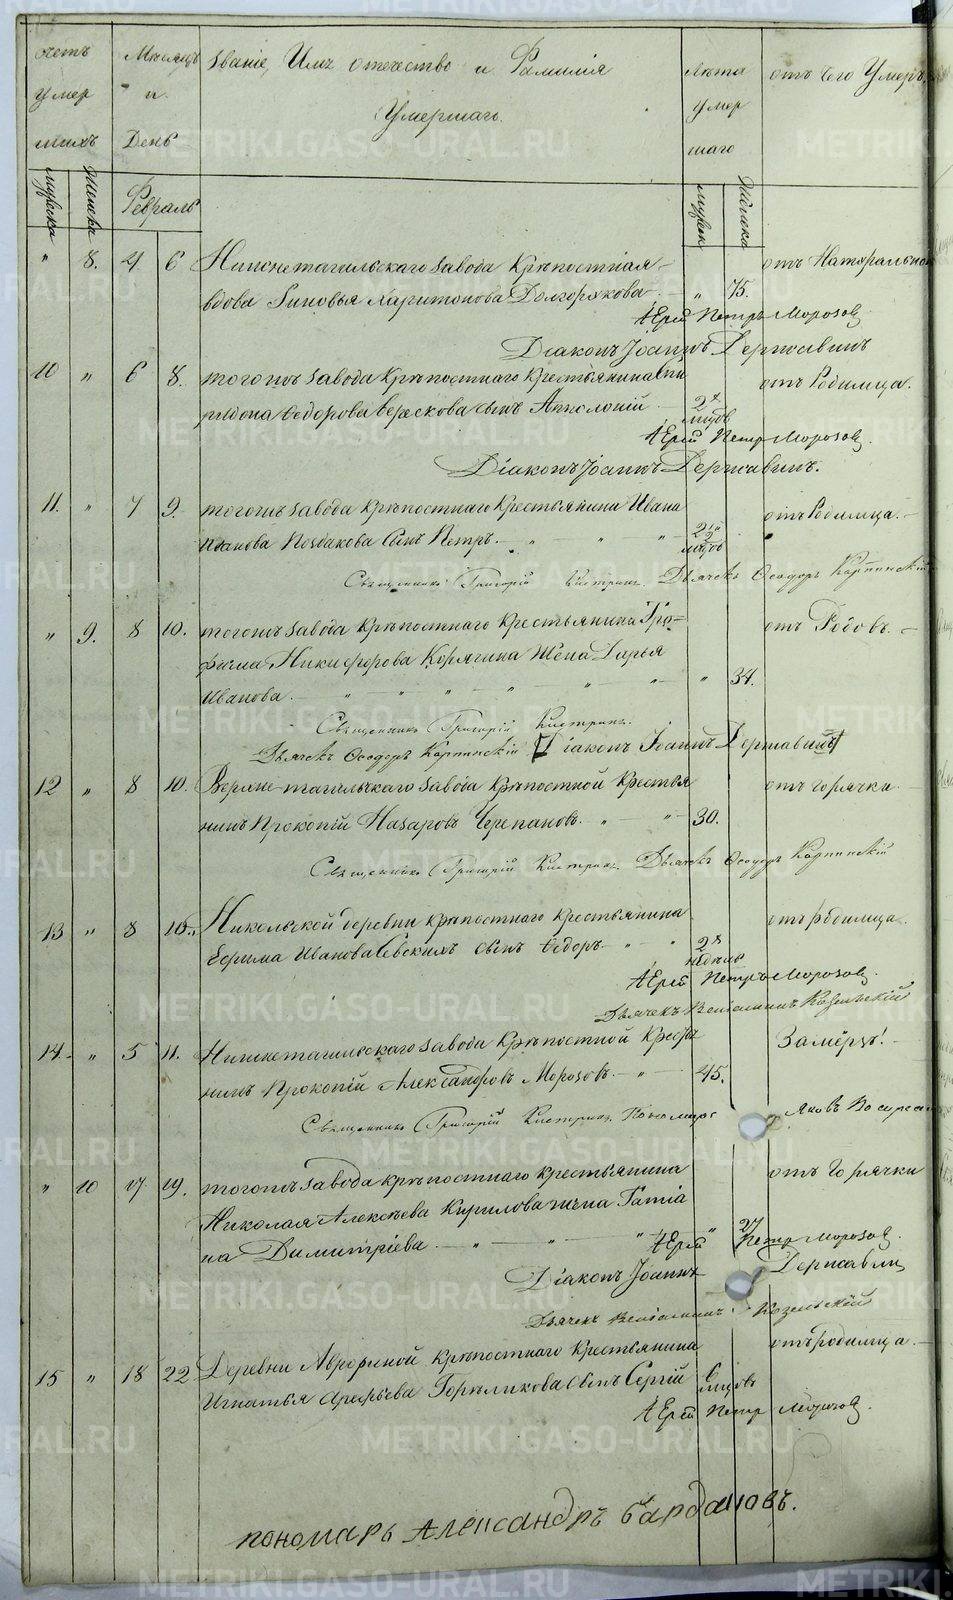 Счетъ умер шихъ
Мѣсяцъ и День
Званіе, Имя отечество и Фамилія Умершаго.
Лѣта умер шаго
отъ чего Умеръ
мужска
Женска
Февраль
мужск
Женска
" 8. 4 6 Нижнетагильскаго завода Крѣпостная
вдова Зиновья Харитонова Долгорукова. " 75. отъ Натуральной
Іерей Петръ Морозов
Діаконъ Іоаннъ Державинъ
10 " 6 8. тогожъ завода Крѣпостнаго Крестьянина Спи
ридона Ѳедорова Верескова сынъ Апполоній 2х мѣцов отъ Родимца.
Іерей Петр Морозов.
Діаконъ Іоаннъ Державинъ.
11. " 7 9. тогожъ завода Крѣпостнаго Крестьянина Ивана
Иванова Казакова сынъ Петръ. " " " 2 1/2 мѣцов отъ Родимца.
Священникъ Григорій Кистринъ. Дьячекъ Ѳеодоръ Карпинскій
" 9. 8 10. тогожъ завода Крѣпостнаго Крестьянина Тро-
фима Никифорова Корягина жена Дарья
Иванова. " " " " " " " 34. отъ Родовъ.
Священникъ Григорій Кистринъ.
Дьячекъ Ѳеодоръ Карпинскій Діаконъ Іоаннъ Державинъ
12 " 8 10. Верхнетагильскаго завода Крѣпостной Крестья
нинъ Прокопій Назаровъ Черепановъ. " " 30. отъ горячки
Священникъ Григорій Кистринъ. Дьячекъ Ѳеодоръ Карпинскій
13 " 8 10. Никольской деревни крѣпостнаго крестьянина
Ефима Иванова сынъ Ѳедоръ " " 2х недѣль отъ родимца.
Іерей Петръ Морозов.
Дьячекъ Веніаминъ Козельскій
14. " 5 11. Нижнетагильскаго завода Крѣпостной Крестья
нинъ Прокопій Александровъ Морозовъ. " 45. Замёрзъ!
Священникъ Григорій Кистринъ. Пономарь Яковъ
" 10 17 19. тогожъ завода крѣпостнаго крестьянина
Николая Алексѣева Кирилова жена Татіа
на Димитріева. " " " " 27 отъ горячки
Іерей Петр Морозов.
Діаконъ Іоаннъ Державин
Дьячекъ Веніаминъ Козельскій
15 " 18 22 Деревни крѣпостнаго крестьянина
Игнатья Арефьева Горѣликова сынъ Сергій 6 мѣцовъ отъ родимца.
Іерей Петр Морозов.
пономарь Александръ Бардановъ.
METRIKI.GASO-URAL.RU